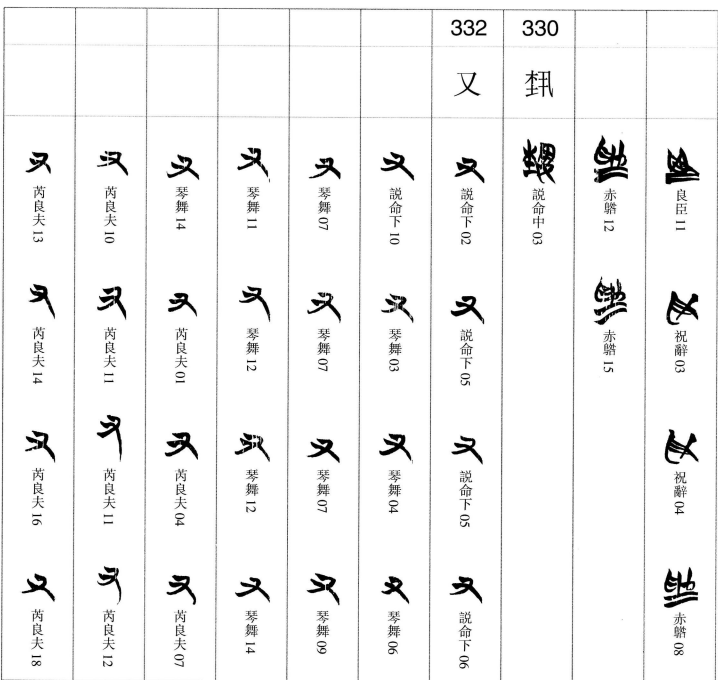 良臣 11
祝辭 03
祝辭 04
赤 08
赤 12
赤 15
330
説命中 03
332
又
説命下 02
説命下 05
説命下 05
説命下 06
説命下 10
琴舞 03
琴舞 04
琴舞 06
琴舞 07
琴舞 07
琴舞 07
琴舞 09
琴舞 11
琴舞 12
琴舞 12
琴舞 14
琴舞 14
芮良夫 01
芮良夫 04
芮良夫 07
芮良夫 10
芮良夫 11
芮良夫 11
芮良夫 12
芮良夫 13
芮良夫 14
芮良夫 16
芮良夫 18